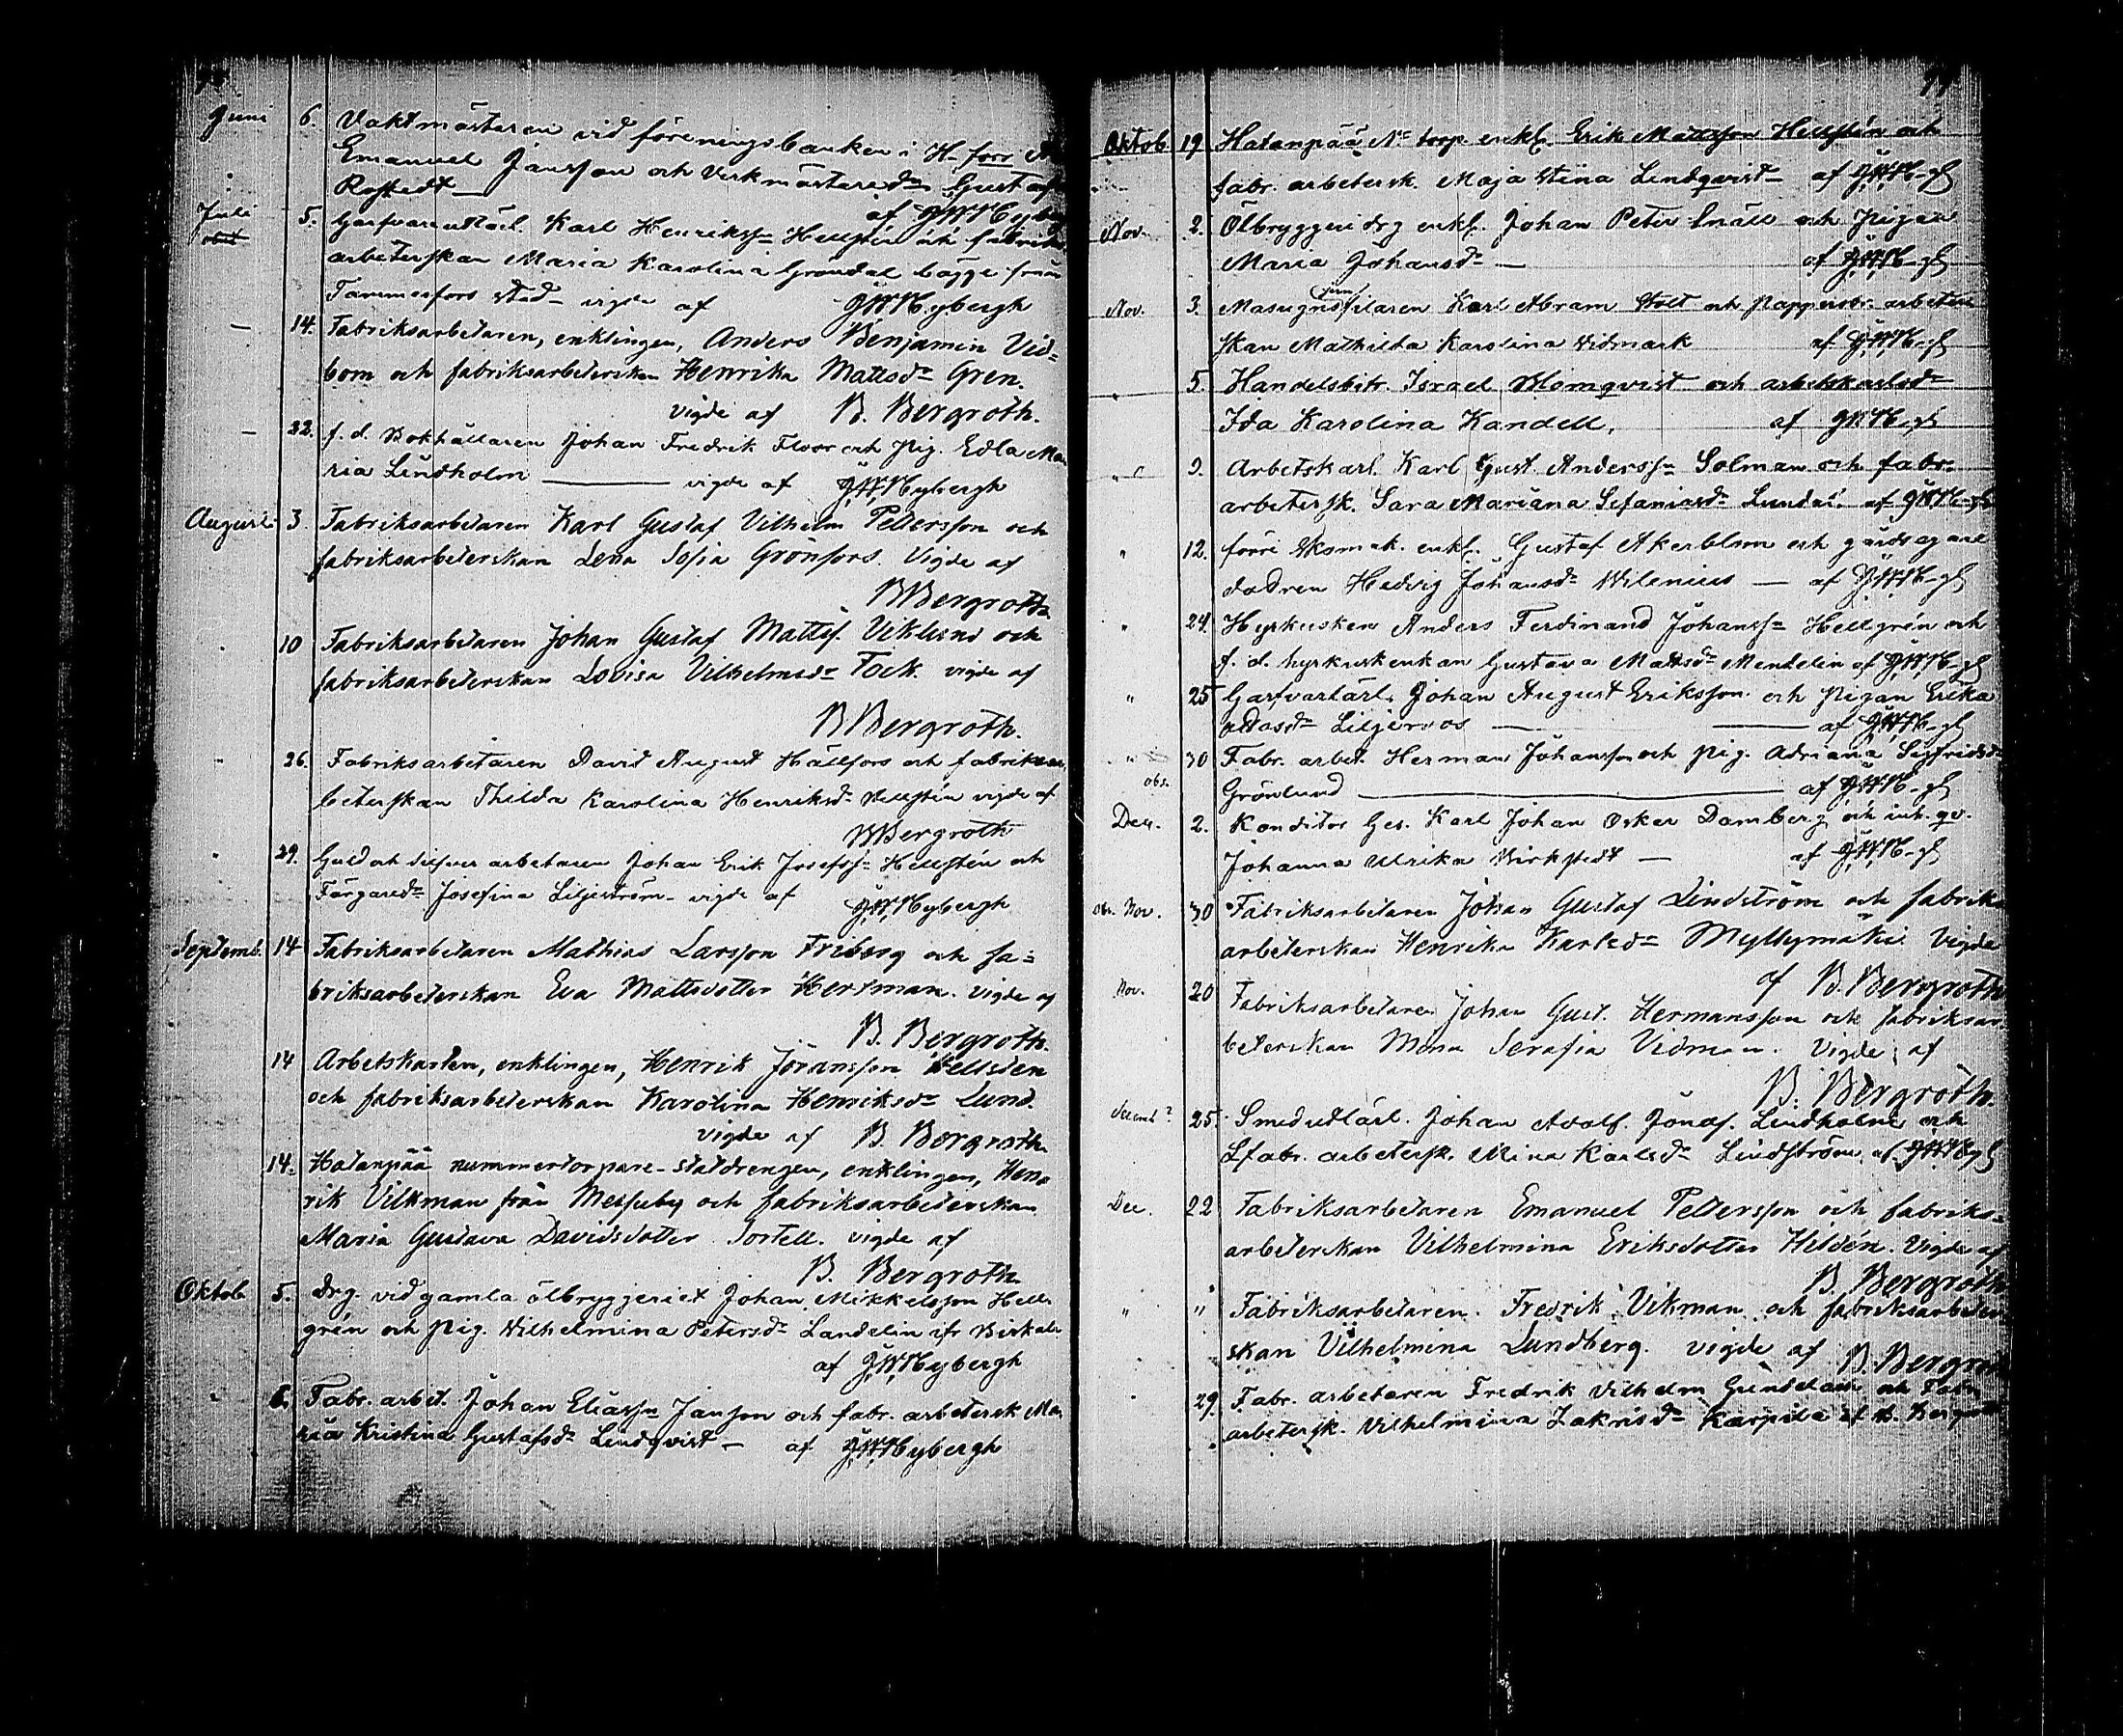 Juni 6. Vaktmästaren vid föreningsbanken i H-fors
Emanuel Jansson och Verkmästared:r Gustafva
Rostedt — af G.W. Nybergh
Juli 5. Garfvareutlärl. Karl Henrikss:n Hellstén och fabriks
arbeterskan Maria Karolina Grondal bägge från
Tammerfors stad — vigde af G.W. Nybergh
— 14. Fabriksarbetaren, enklingen, Anders Benjamin Vid=
bom och fabriksarbeterskan Henrika Mattsd:r Gren.
vigde af B. Bergroth.
— 22. f. d. Bokhållaren Johan Fredrik Floor och pig. Edla Ma
ria Lindholm — vigde af G.W. Nybergh
Augusti 3 Fabriksarbetaren Karl Gustaf Vilhelm Pettersson och
fabriksarbeterskan Lena Sofia Grönfors. Vigde af
B Bergroth
10 Fabriksarbetaren Johan Gustaf Mattsf. Viklund och
fabriksarbeterskan Lovisa Vilhelmsd:r Fock. vigde af
B Bergroth.
" 26. Fabriksarbetaren David August Hällfors och fabriksar
beterskan Thilda Karolina Henriksd:r Hellstén vigde af
B Bergroth
" 29. Guld och silfver arbetaren Johan Erik Josefss:n Hellstén och
Färgared:r Josefina Liljeström — vigde af G.W. Nybergh
Septemb. 14 Fabriksarbetaren Mathias Larsson Friberg och fa=
briksarbeterskan Eva Mattsdotter Hertman. vigde af
B. Bergroth.
14 Arbetskarlen, enklingen, Henrik Jöransson Hellsten
och fabriksarbeterskan Karolina Henriksd:r Lund.
vigde af B. Bergroth
14. Hatanpää nummertorpare-statdrengen, enklingen, Hen=
rik Vilkman från Messuby och fabriksarbeterskan
Maria Gustava Davidsdotter Tortell. vigde af
B. Bergroth
Oktob. 5. Drg. vid gamla ölbryggeriet Johan Mikkelsson Hell
grén och pig. Wilhelmina Petersd:r Landelin ifr Birkala
af G.W. Nybergh
" 6. Fabr. arbet. Johan Eliass:n Janson och fabr. arbetersk Ma
ria Kristina Gustafsd:r Lindqvist — af G.W. Nybergh
Oktob 19 Hatanpää N:o torp. enkl. Erik Mattsson Hellstén och
fabr. arbetersk. Maja Stina Lindqvist — af G.W.N-gh
Nov. 2. Ölbryggeridrg enkl. Johan Peter Snäll och Pigan
Maria Johansd:r — af G.W.N-gh
Nov. 3. Masugns Karl Abram Holt och Pappersbr. arbeter
skan Mathilda Karolina Widmark af G.W.N-gh
" 5. Handelsbitr. Israel Blomqvist och arbetskarlsd:r
Ida Karolina Kandell, af G.W.N-gh
" 9. Arbetskarl. Karl Gust. Anderss:n Solman och fabr.
arbetersk. Sara Mariana Sefaniasd:r Lundal. af G.W.N-gh
" 12. förre Skomak. enkl. Gustaf Åkerblom och gårdsegare
dottren Hedvig Johansd:r Wilenius — af G.W.N-gh
" 24. Hyrkusken Anders Ferdinand Johanss:n Hellgrén och
f. d. hyrkuskenkan Gustava Mattsd:r Mendelin af G.W.N-gh
" 25 Garfvarlärl. Johan August Eriksson och pigan Erika
Adasd:r Liljeroos — af G.W.N-gh
" 30 Fabr. arbet. Herman Johansson och pig. Adriana Sigfridsd:r
obs. Grönlund — af G.W.N-gh
Dec. 2. Konditor Ges. Karl Johan Oskar Damberg och inh. qv.
Johanna Ulrika Birkstedt — af G.W.N-gh
Obs. Nov. 30 Fabriksarbetaren Johan Gustaf Lindström och fabriks
arbeterskan Henrika Karlsd:r Myllymäki. Vigde
af B. Bergroth
Nov. 20 Fabriksarbetaren Johan Gust. Hermansson och fabriksar
beterskan Mina Serafia Vidman. Vigde af
B. Bergroth.
25. Smedutlärl. Johan Adolf. Jonasf. Lindholm och
Lfabr. arbetersk. Mina Karlsd:r Lindström. af G.W.N-gh
Dec. 22 Fabriksarbetaren Emanuel Pettersson och fabriks=
arbeterskan Vilhelmina Eriksdotter Hildén. Vigde af
B. Bergroth
" " Fabriksarbetaren. Fredrik Vikman och fabriksarbeter
skan Vilhelmina Lundberg. vigde af B. Bergroth
" 29. Fabr. arbetaren Fredrik Vilhelm och Fabr.
arbetersk. Vilhelmina Zakrisd:r Karpila af B. Bergroth